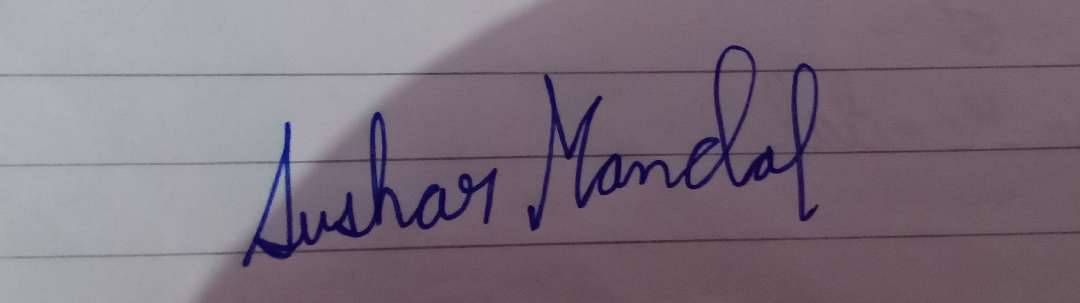 Sushar Mandal